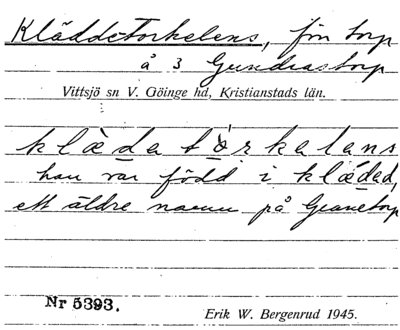 Kläddetorkelens, frn torp
å 3 Gundrastorp
Vittsjö sn V. Göinge hd, Kristianstads län.
klädatòrkalans
han var född i kläded,
ett äldre namn på Granetorp
Nr 5393.
Erik W. Bergenrud 1945.